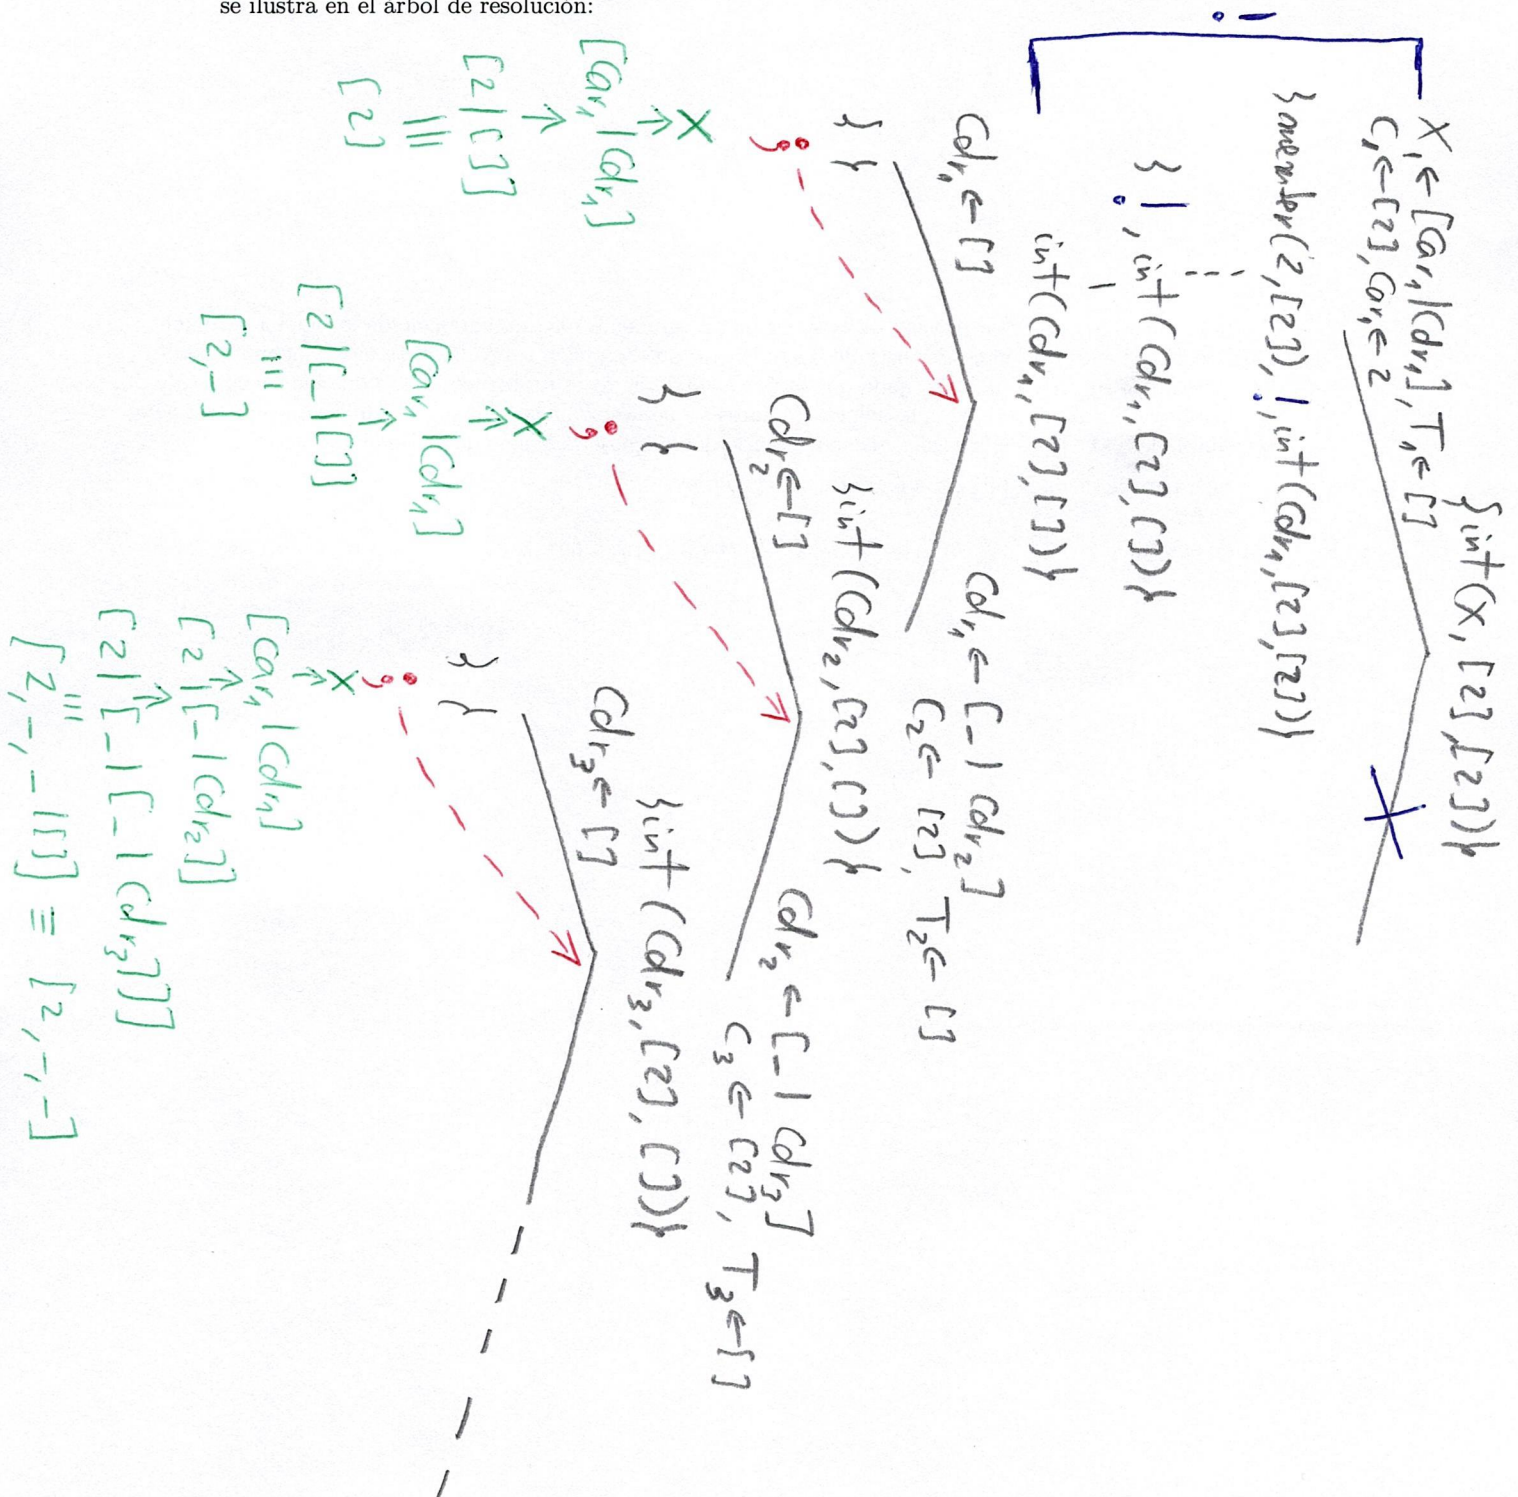 se ilustra en el árbol de resolución:
{int(X,[2],[2])}
X₁←[Car₁|Cdr₁],T₁←[]
C₁←[2],Car₁←2
{member(2,[2]),!,int(Cdr₁,[2],[2])}
!
{!,int(Cdr₁,[2],[])}
int(Cdr₁,[2],[])}
Cdr₁←[]
Cdr₁←[_|Cdr₂]
C₂←[2],T₂←[]
{}
;
X
[Car₁|Cdr₁]
[2|[]]
[2]
{int(Cdr₂,[2],[])}
Cdr₂←[]
Cdr₂←[_|Cdr₃]
C₃←[2],T₃←[]
{}
;
X
[Car₁|Cdr₁]
[2|[_|[]]
[2,_]
{int(Cdr₃,[2],[])}
Cdr₃←[]
{}
;
X
[Car₁|Cdr₁]
[2|[_|Cdr₂]]
[2|[_|[_|Cdr₃]]]
[2,_,_|[]]≡[2,_,_]